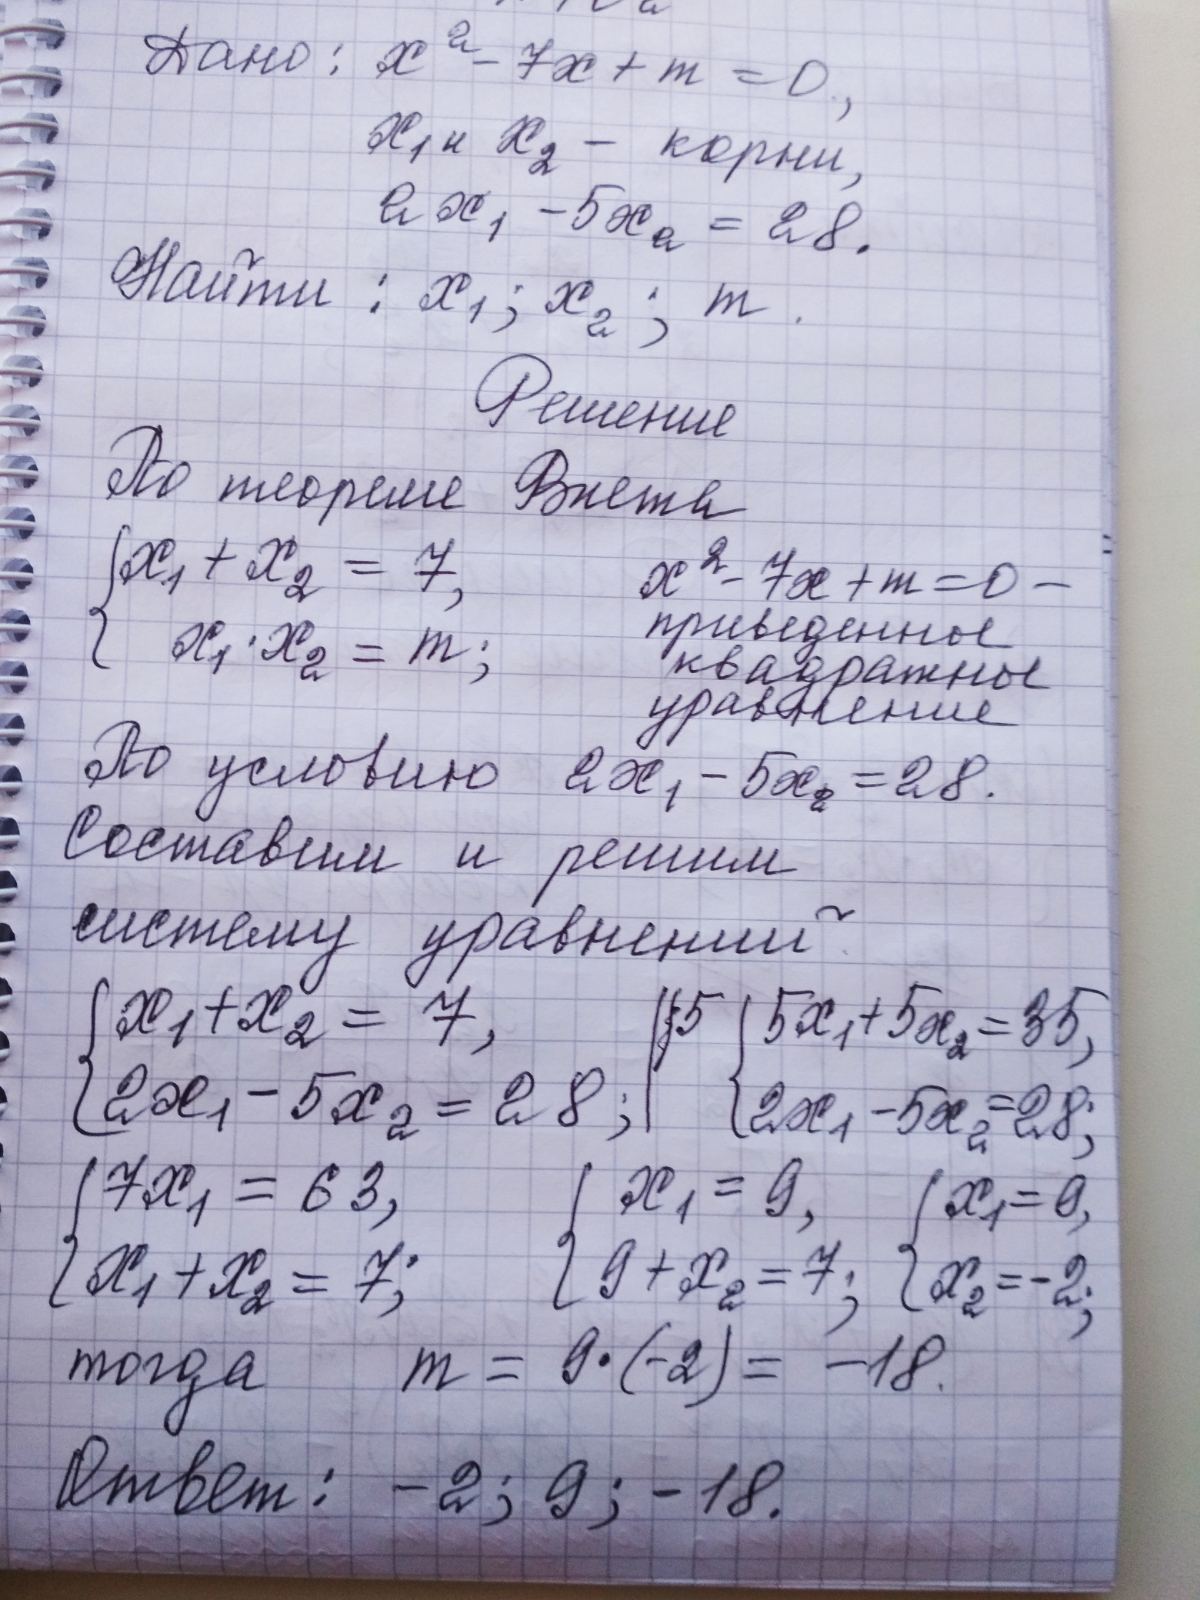 Дано: x² - 7x + m = 0,
x₁ и x₂ - корни,
2x₁ - 5x₂ = 28.
Найти: x₁; x₂; m.
Решение
По теореме Виета
{x₁ + x₂ = 7,
x₁ · x₂ = m;
x² - 7x + m = 0 -
приведенное
квадратное
уравнение
По условию 2x₁ - 5x₂ = 28.
Составим и решим
систему уравнений.
{x₁ + x₂ = 7, |·5 {5x₁ + 5x₂ = 35,
2x₁ - 5x₂ = 28; | 2x₁ - 5x₂ = 28;
{7x₁ = 63, {x₁ = 9, {x₁ = 9,
x₁ + x₂ = 7; 9 + x₂ = 7; x₂ = -2;
тогда m = 9·(-2) = -18.
Ответ: -2; 9; -18.